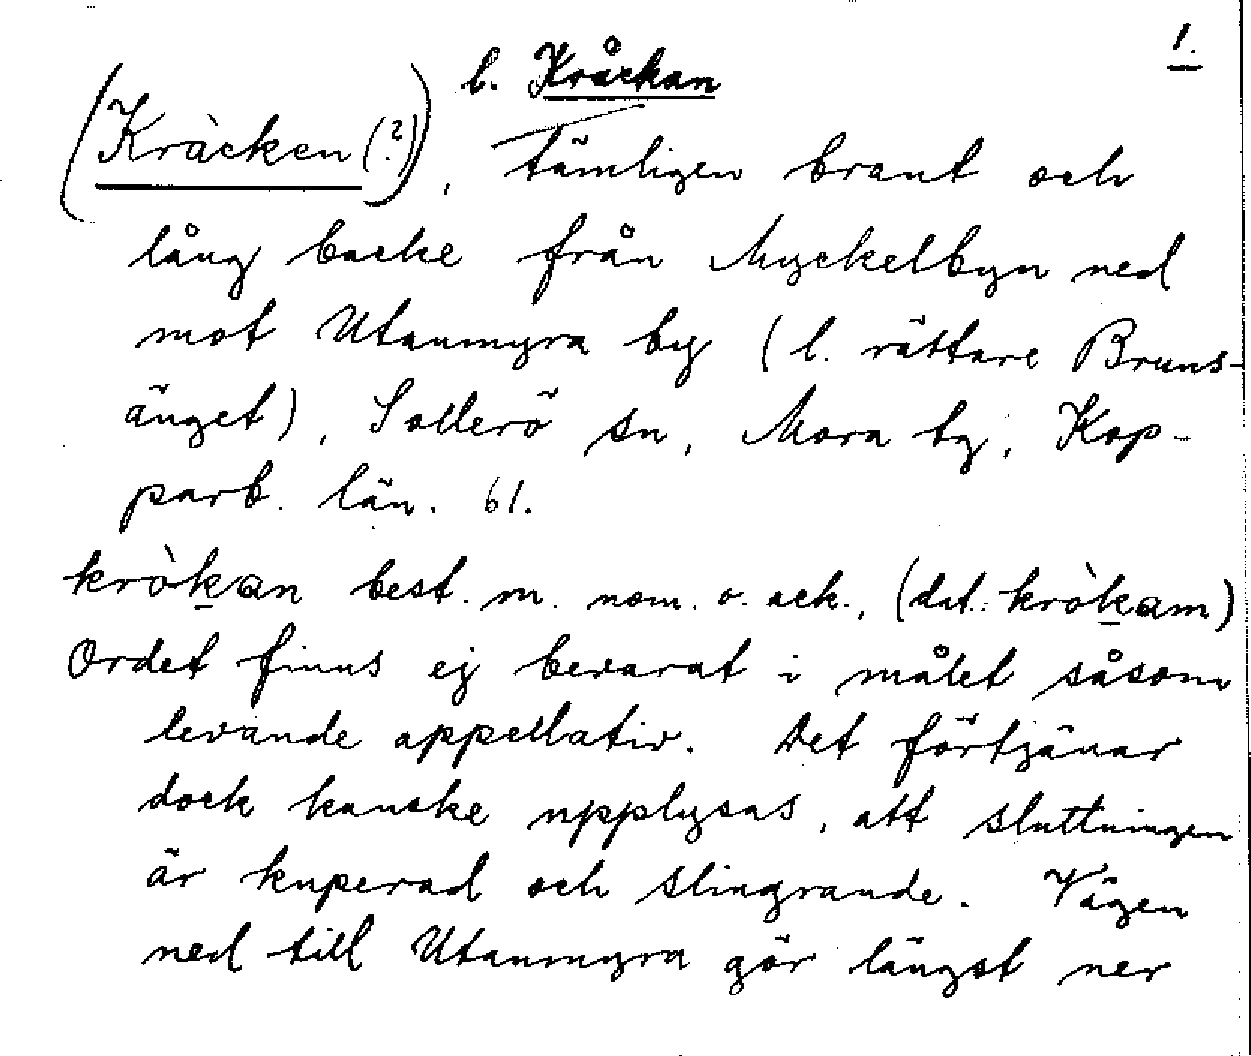 1.
l. Kråckan
(Kràcken (?)), tämligen brant och
lång backe från Myckelbyn ned
mot Utanmyra by (l. rättare Bruns-
änget), Sollerö sn, Mora tg, Kop-
parb. län. 61.
kròkan best. m. nom. o. ack., (dat. kròkam)
Ordet finns ej bevarat i målet såsom
levande appellativ. Det förtjänar
dock kanske upplysas, att sluttningen
är kuperad och slingrande. Vägen
ned till Utanmyra gör längst ner